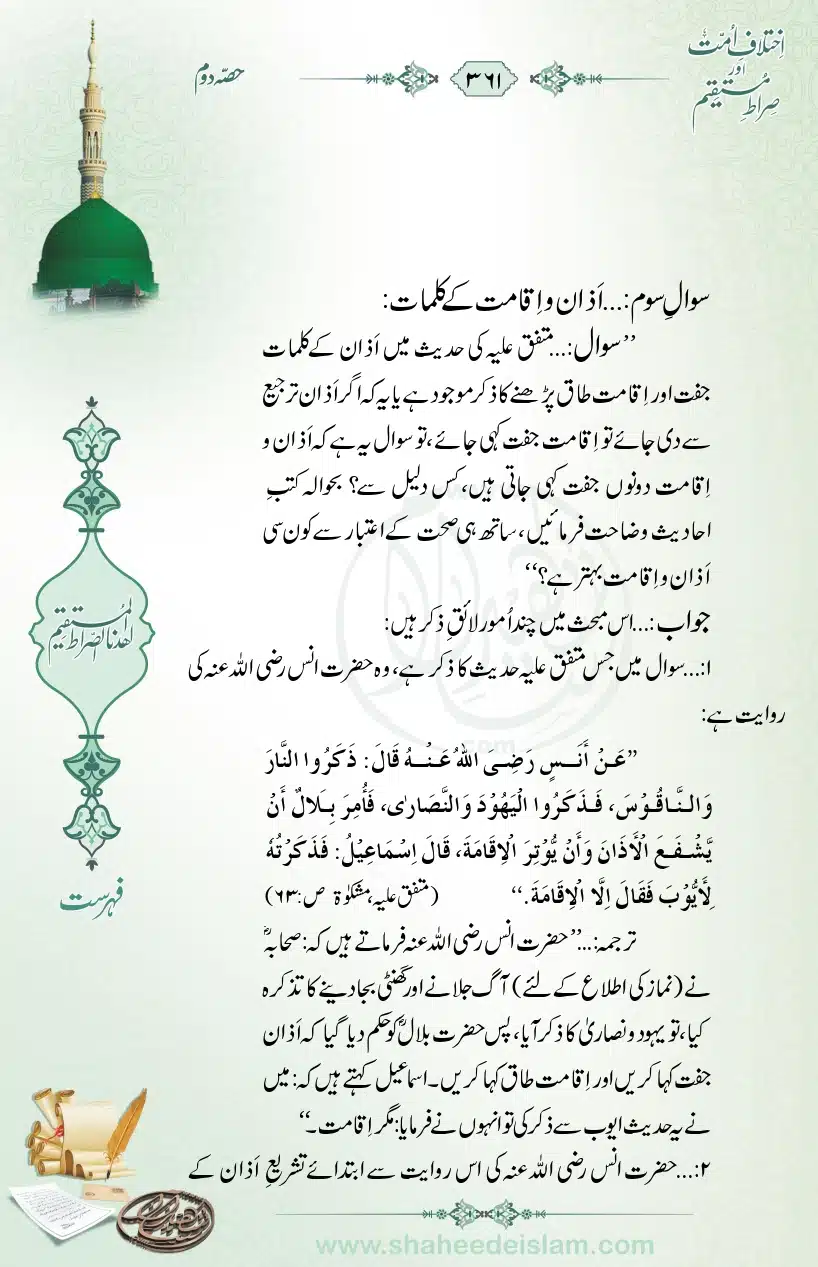 اِختلافِ اُمّت
اور
صِراطِ مُستقیم
۳۶۱
حصّہ دوم
سوالِ سوم:...اَذان و اِقامت کے کلمات:
’’سوال:...متفق علیہ کی حدیث میں اَذان کے کلمات
جفت اور اِقامت طاق پڑھنے کا ذکر موجود ہے یا یہ کہ اگر اَذان ترجیع
سے دی جائے تو اِقامت جفت کہی جائے، تو سوال یہ ہے کہ اَذان و
اِقامت دونوں جفت کہی جاتی ہیں، کس دلیل سے؟ بحوالہ کتبِ
احادیث وضاحت فرمائیں، ساتھ ہی صحت کے اعتبار سے کون سی
اَذان و اِقامت بہتر ہے؟‘‘
جواب:...اس مبحث میں چند اُمور لائقِ ذکر ہیں:
۱:...سوال میں جس متفق علیہ حدیث کا ذکر ہے، وہ حضرت انس رضی اللہ عنہ کی
روایت ہے:
”عَنْ أَنَسٍ رَضِیَ اللهُ عَنْهُ قَالَ: ذَکَرُوا النَّارَ
وَالنَّاقُوْسَ، فَذَکَرُوا الْیَهُوْدَ وَالنَّصَارٰی، فَأُمِرَ بِلَالٌ أَنْ
یَّشْفَعَ الْأَذَانَ وَأَنْ یُّوْتِرَ الْاِقَامَةَ، قَالَ اِسْمَاعِیْلُ: فَذَکَرْتُهُ
لِأَیُّوْبَ فَقَالَ اِلَّا الْاِقَامَةَ.‘‘ (متفق علیہ، مشکوٰۃ ص:۶۳)
ترجمہ:...’’حضرت انس رضی اللہ عنہ فرماتے ہیں کہ: صحابہؓ
نے (نماز کی اطلاع کے لئے) آگ جلانے اور گھنٹی بجا دینے کا تذکرہ
کیا، تو یہود و نصاریٰ کا ذکر آیا، پس حضرت بلالؓ کو حکم دیا گیا کہ اَذان
جفت کہا کریں اور اِقامت طاق کہا کریں۔ اسماعیل کہتے ہیں کہ: میں
نے یہ حدیث ایوب سے ذکر کی تو انہوں نے فرمایا: مگر اِقامت۔‘‘
۲:...حضرت انس رضی اللہ عنہ کی اس روایت سے ابتدائے تشریعِ اَذان کے
اهدنا الصراط المستقیم
فہرست
www.shaheedeislam.com